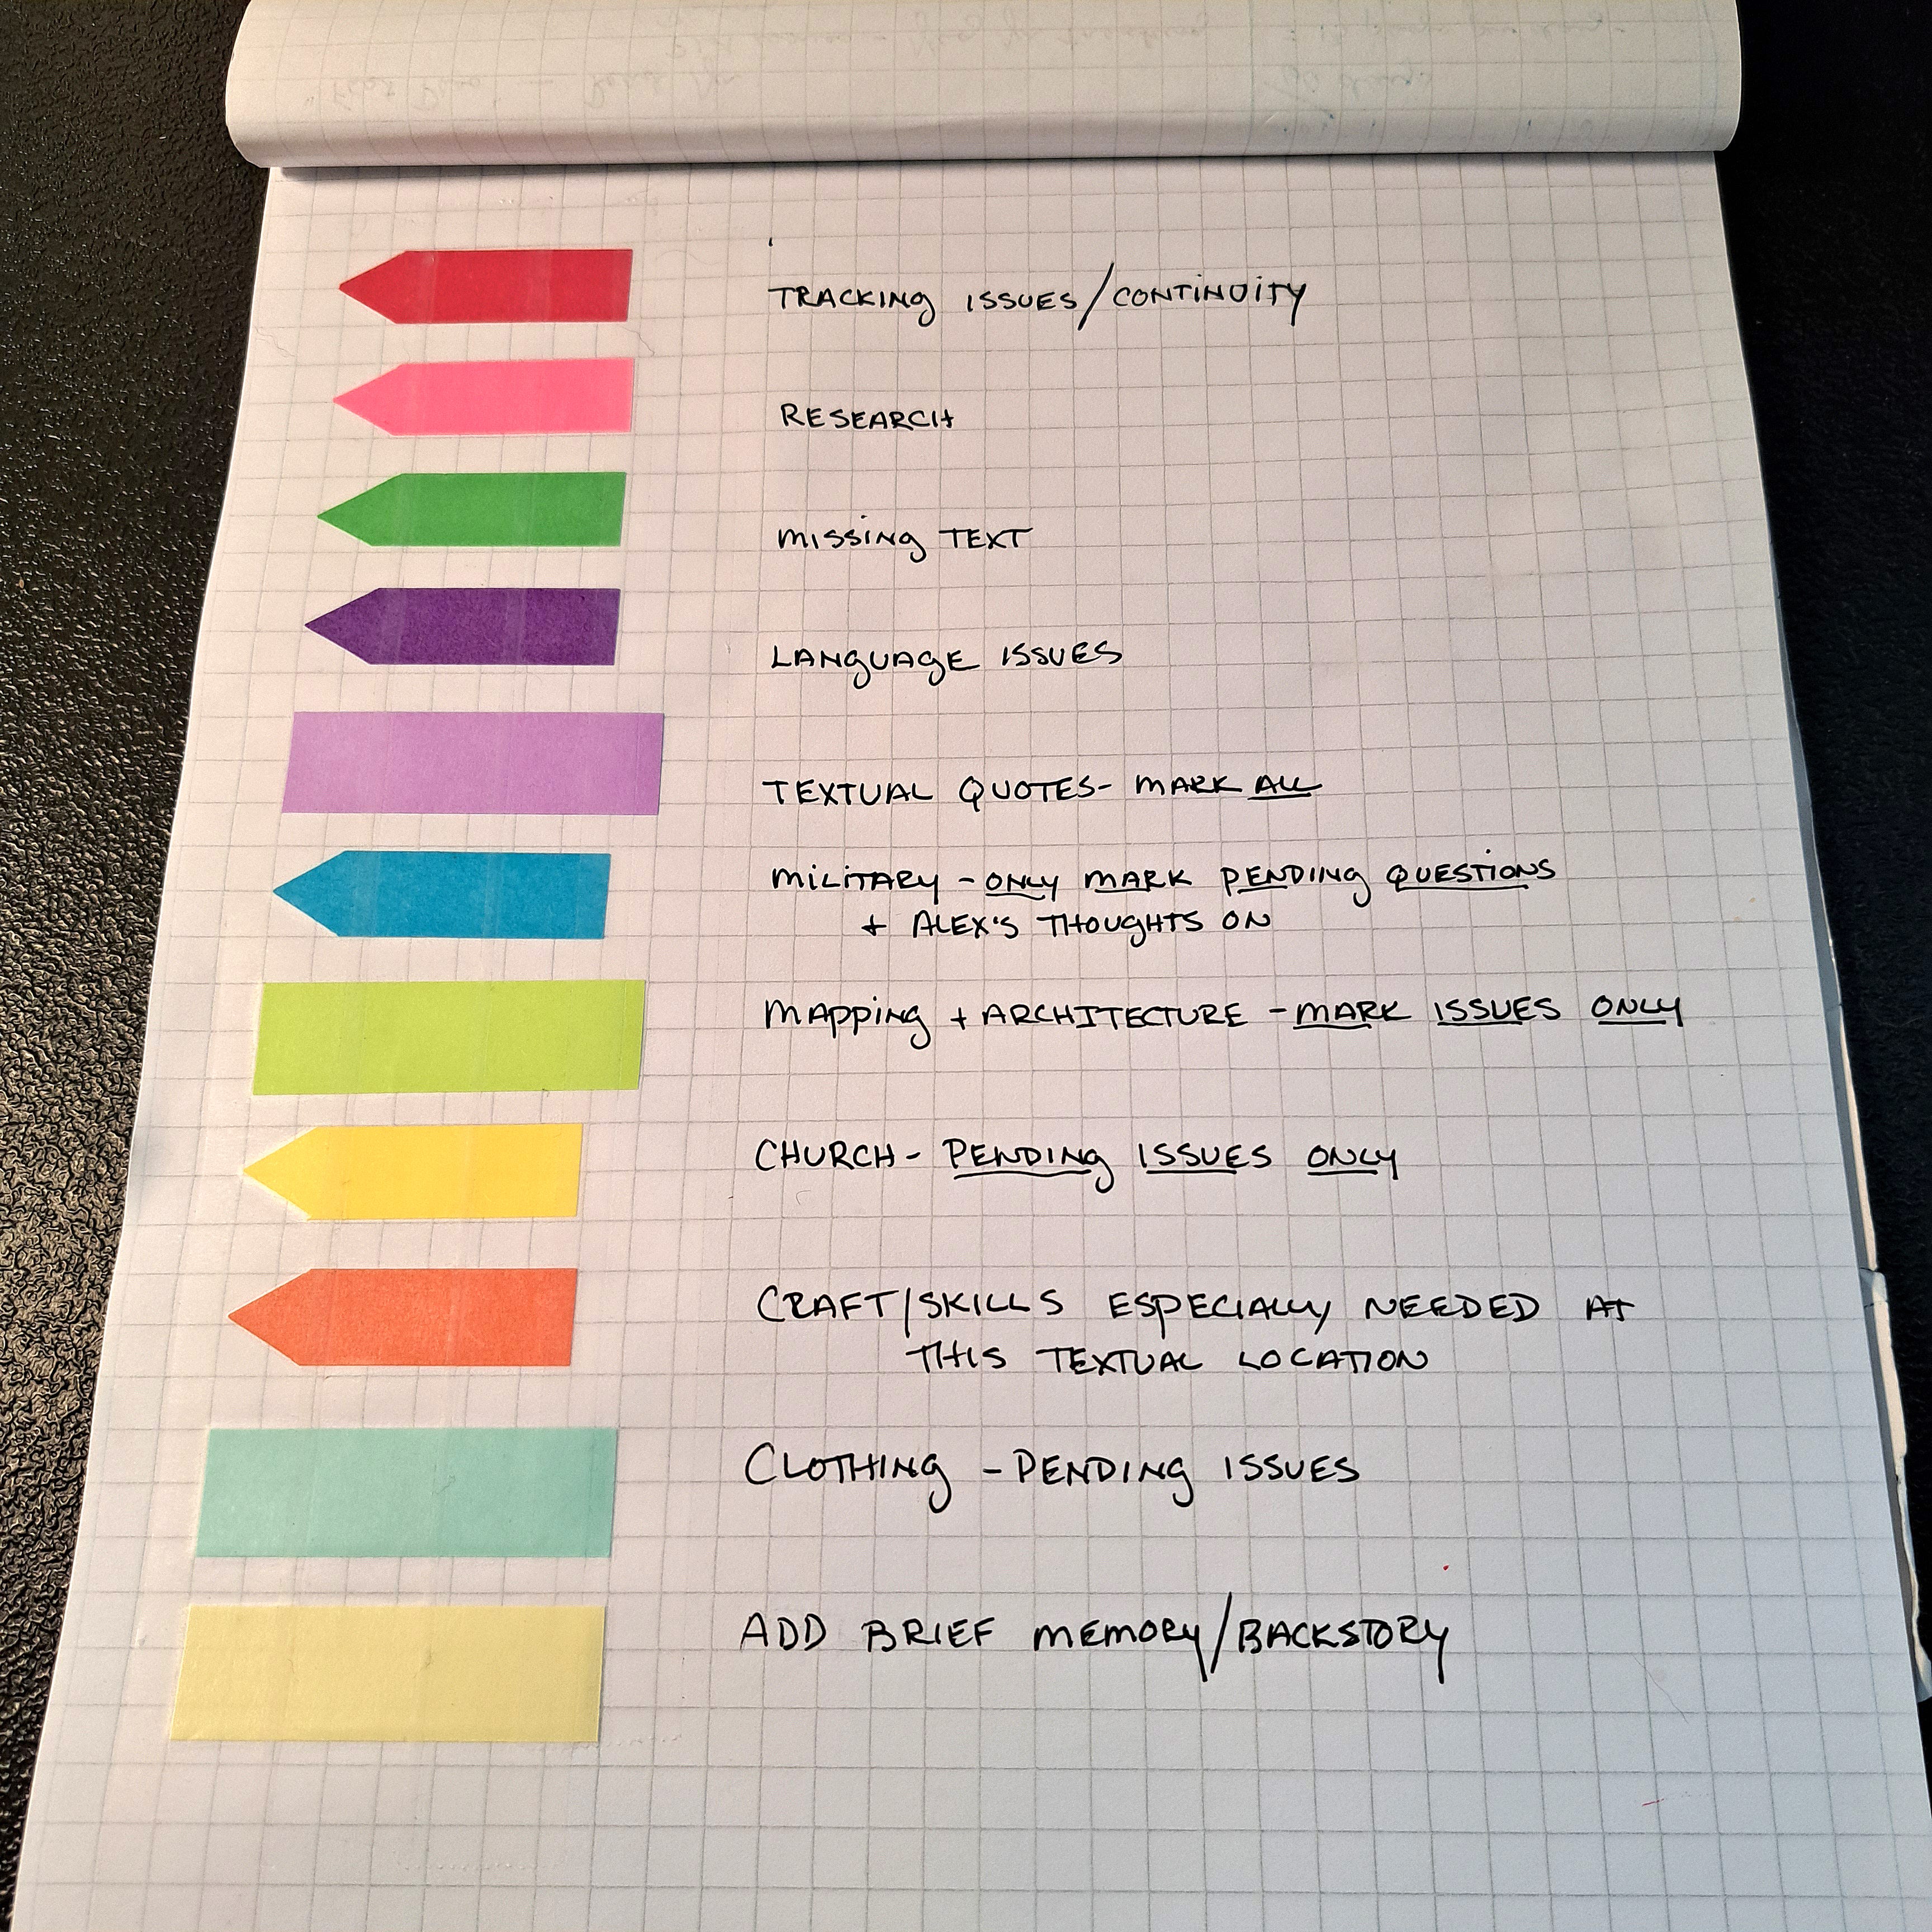 TRACKING ISSUES/CONTINUITY
RESEARCH
MISSING TEXT
LANGUAGE ISSUES
TEXTUAL QUOTES- MARK ALL
MILITARY - ONLY MARK PENDING QUESTIONS
+ ALEX'S THOUGHTS ON
MAPPING + ARCHITECTURE - MARK ISSUES ONLY
CHURCH- PENDING ISSUES ONLY
CRAFT/SKILLS ESPECIALLY NEEDED AT
THIS TEXTUAL LOCATION
CLOTHING - PENDING ISSUES
ADD BRIEF MEMORY/BACKSTORY